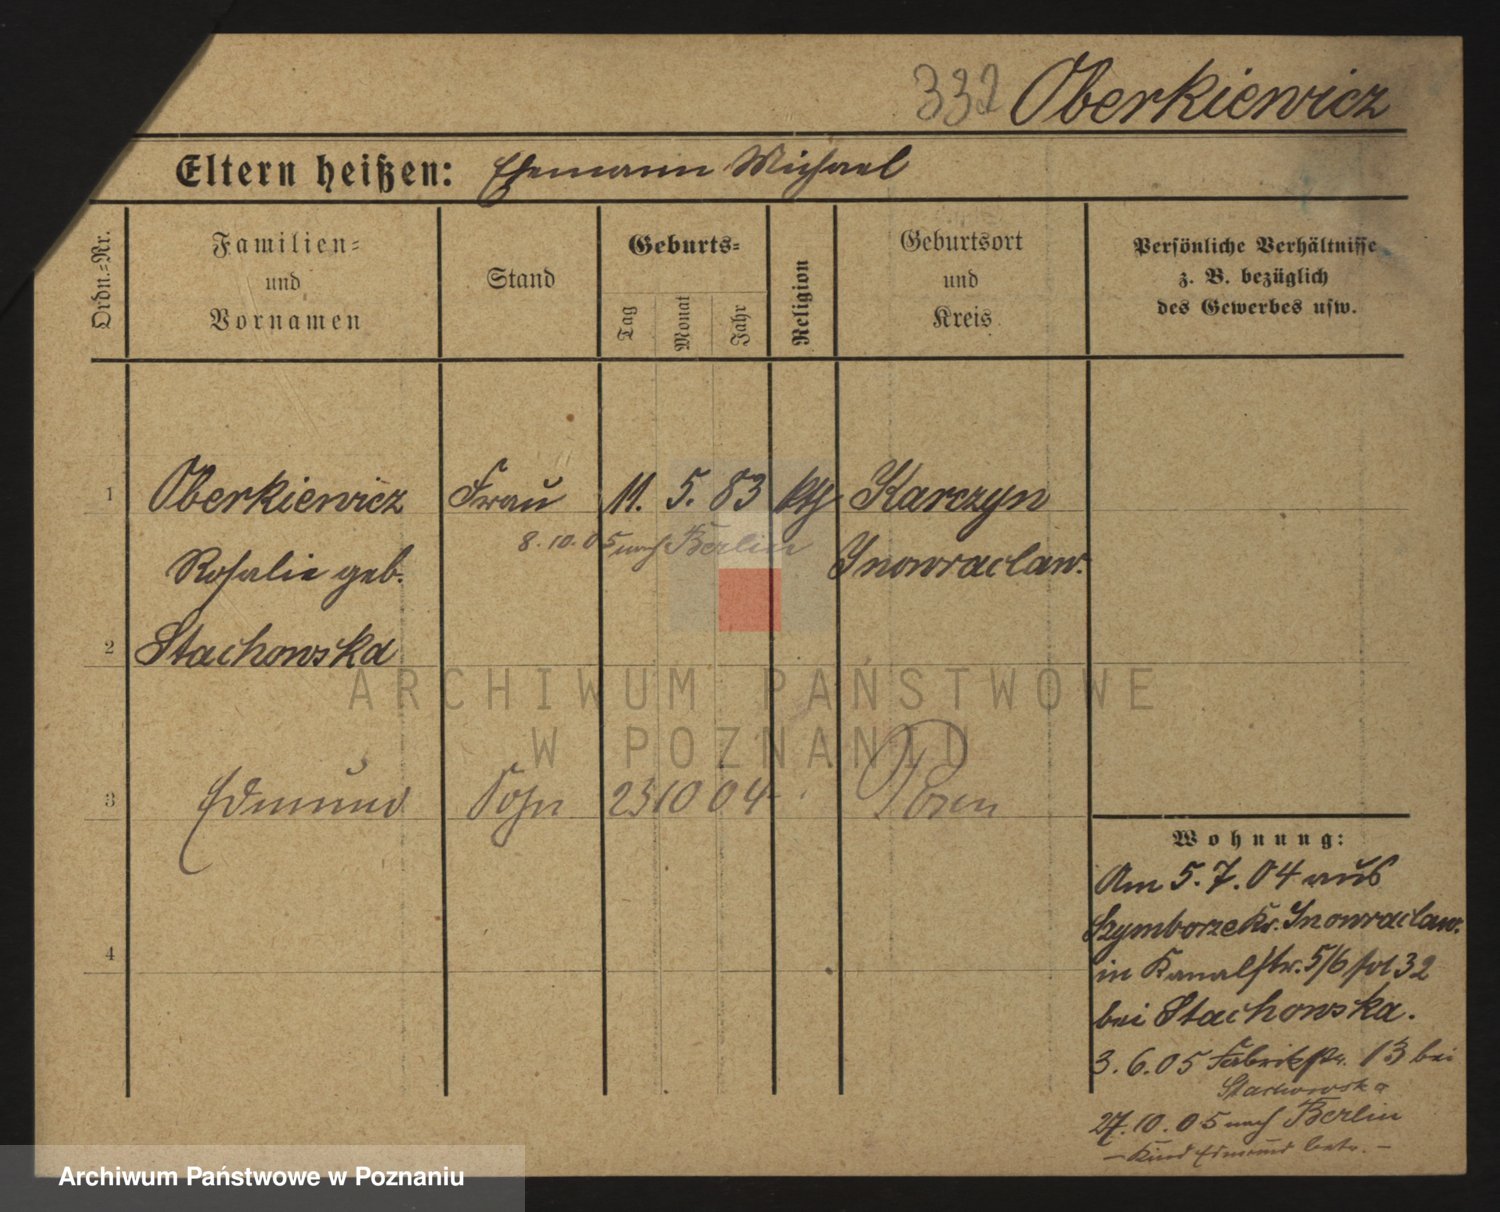 332 Oberkiewicz
Eltern heißen: Ehemann Michael
Ordn.=Nr.
Familien=
und
Vornamen
Stand
Geburts=
Tag
Monat
Jahr
Religion
Geburtsort
und
Kreis
Persönliche Verhältnisse
z. B. bezüglich
des Gewerbes usw.
1 Oberkiewicz Frau 11. 5. 83 kth Karczyn
8.10.05 nach Berlin
Rosalie geb. Inowraclaw.
2 Stachowska
ARCHIWUM PAŃSTWOWE
W POZNANIU
3 Edmund Sohn 23 10 04 Posen
4
Wohnung:
Am 5.7.04 aus
Szymborze Kr. Inowraclaw.
in Kanalstr. 5/6 32
bei Stachowska.
3.6.05 Fabrikstr. 13 bei
Stachowska
27.10.05 nach Berlin
– Kind Edmund betr. –
Archiwum Państwowe w Poznaniu